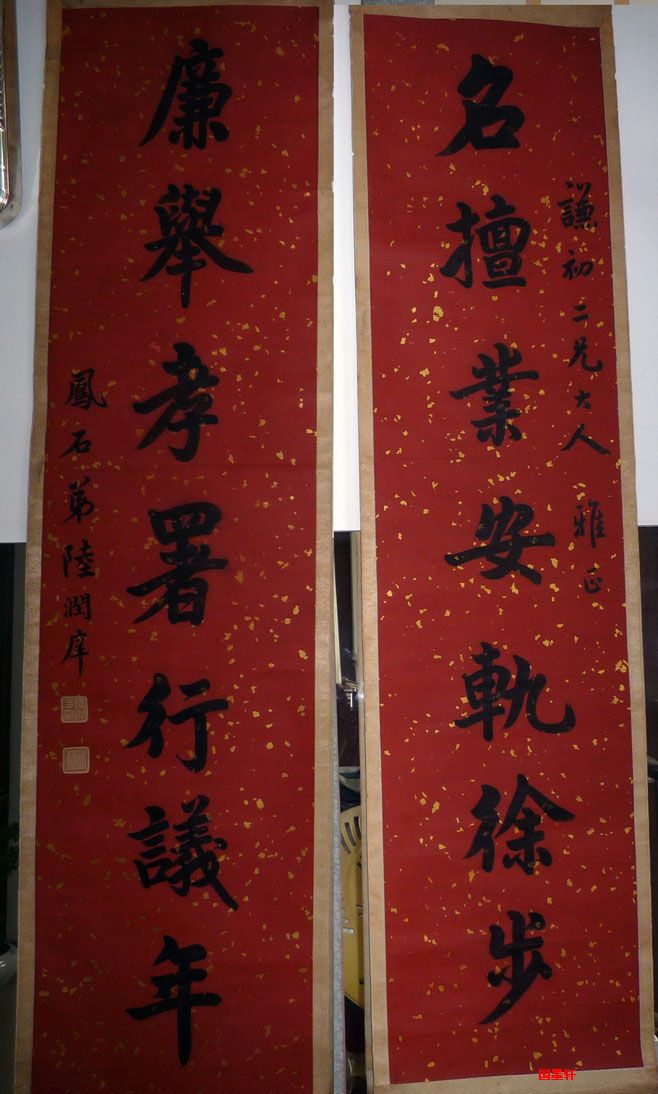 謙初二兄大人 雅正
名擅業安軌徐步
廉舉孝署行議年
鳳石弟陸潤庠
国墨轩